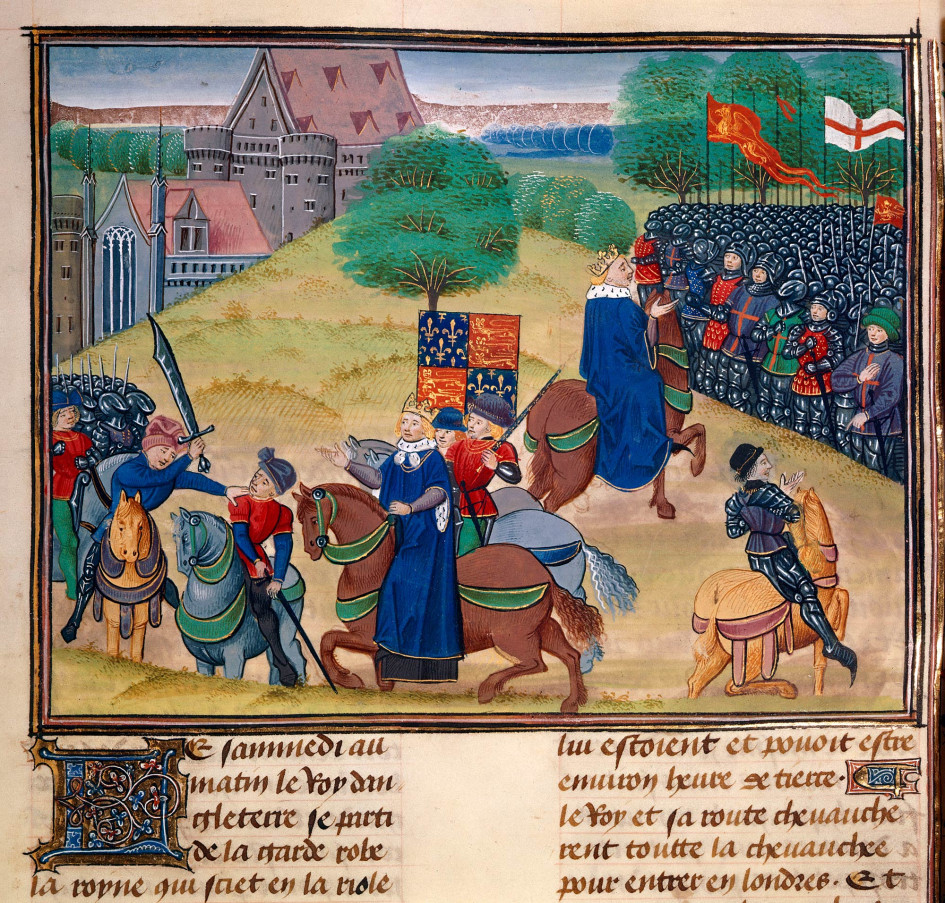 Le sammedi au
matin le Roy dan
gleterre se parti
de la garde robe
la royne qui siet en la riole
lui estoient et povoit estre
environ heure de tierce.
le Roy et sa route chevauche
rent toutte la chevauchee
pour entrer en londres. Et